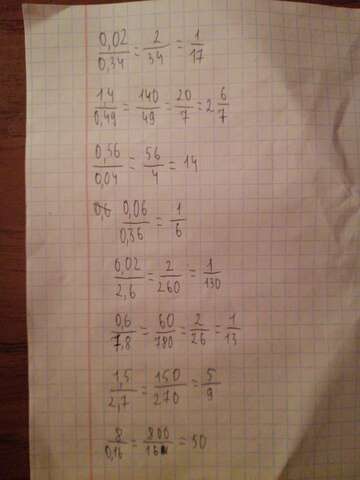 0,02/0,34 = 2/34 = 1/17
1,4/0,49 = 140/49 = 20/7 = 2 6/7
0,56/0,04 = 56/4 = 14
0,06/0,36 = 1/6
0,02/2,6 = 2/260 = 1/130
0,6/7,8 = 60/780 = 2/26 = 1/13
1,5/2,7 = 150/270 = 5/9
8/0,16 = 800/16 = 50